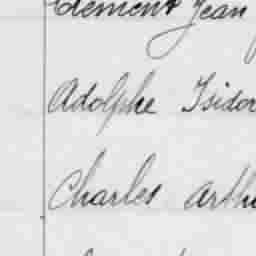 Clement Jean
Adolphe Isidor
Charles Arthu